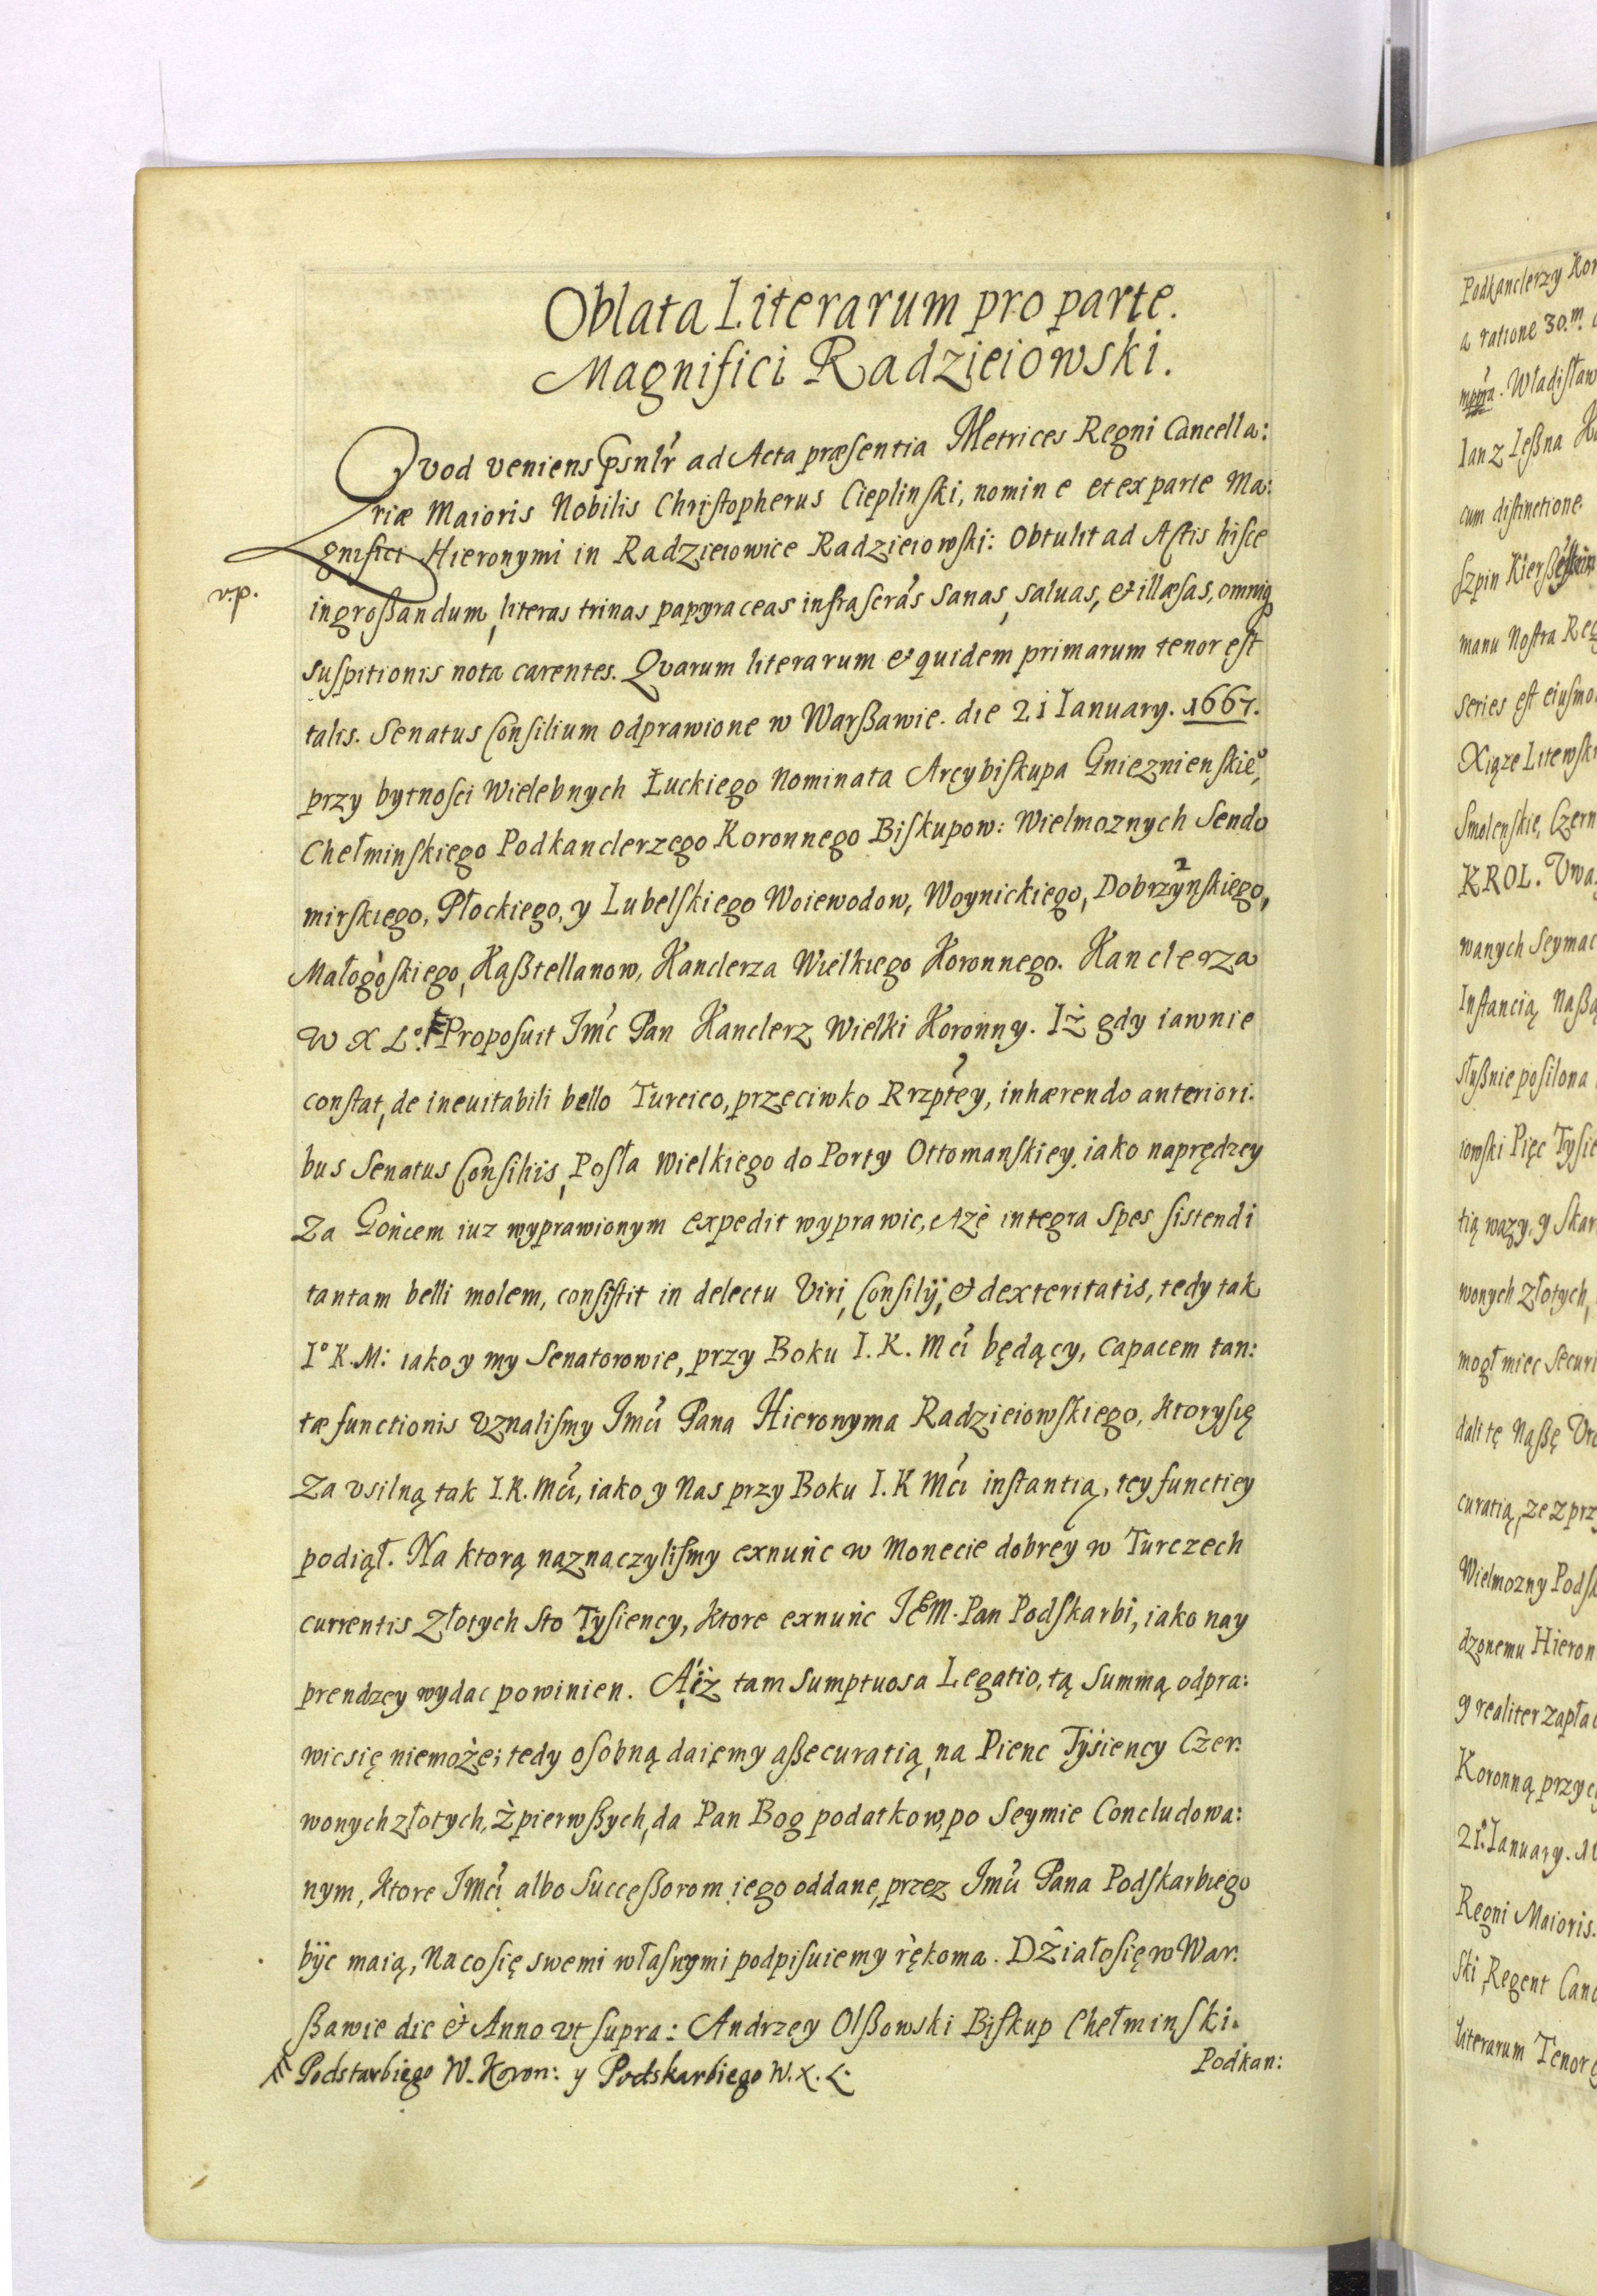 Oblata Literarum pro parte.
Magnifici Radzieiowski.
Qvod veniens Psnlr ad Acta præsentia Metrices Regni Cancella:
riæ Maioris Nobilis Christopherus Cieplinski, nomine et ex parte Ma:
gnifici Hieronymi in Radzieiowice Radzieiowski: Obtulit ad Actis hisce
v.p.
ingroßandum, literas trinas papyraceas infrascrãs sanas, saluas, et illæsas, omniq
suspitionis nota carentes. Qvarum literarum et quidem primarum tenor est
talis. Senatus Consilium odprawione w Warßawie. die 21 Ianuary. 1667.
przy bytnosci Wielebnych Łuckiego Nominata Arcybiskupa Gnieznienskieº,
Chełminskiego Podkanclerzego Koronnego Biskupow: Wielmoznych Sendo
mirskiego, Płockiego, y Lubelskiego Woiewodow, Woynickiego, Dobrzynskiego,
Małogoskiego, Kaßtellanow, Kanclerza Wielkiego Koronnego. Kanclerza
W X Lº. Proposuit Jmc Pan Kanclerz Wielki Koronny. Iż gdy iawnie
constat, de ineuitabili bello Turcico, przeciwko Rrzptey, inhærendo anteriori.
bus Senatus Consiliis, Posła Wielkiego do Porty Ottomanskiey, iako naprędzey
Za Gońcem iuz wyprawionym expedit wyprawic, Aże integra Spes sistendi
tantam belli molem, consistit in delectu Viri, Consilÿ, et dexteritatis, tedy tak
Iº K.M: iako y my Senatorowie, przy Boku I.K. Mci będący, capacem tan:
tæ functionis Vznalismy Jmci Pana Hieronyma Radzieiowskiego, ktorysię
Za vsilną tak I.K. Mci, iako y Nas przy Boku I.K Mci instantią, tey functiey
podiął. Na ktorą naznaczylismy exnunc w Monecie dobrey w Turczech
currentis Złotych Sto Tysiency, ktore exnunc JEM. Pan Podskarbi, iako nay
prendzey wydac powinien. A iż tam Sumptuosa Legatio, tą Summą odpra:
wic się niemoże; tedy osobną daiemy aßecuratią, na Pienc Tysiency Czer:
wonych złotych, żpierwßych, da Pan Bog podatkow, po Seymie Concludowa:
nym, ktore Jmci albo Succeßorom iego oddane, przez Jmci Pana Podskarbiego
bÿc maią, Nacosię swemi własnymi podpisuiemy rękoma. Działosię w War:
ßawie die et Anno vt supra: Andrzey Olßowski Biskup Chełminski.
Podkan:
Podskarbiego W. Koron: y Podskarbiego W. X. L.
Podkanclerzy Kor
a ratione 30.m.
mppra. Władisław
Ian z Leßna
cum distinctione.
manu Nostra Reg
series est eiusmo
Xiąze Litewski
Smolenskie, Czern
KROL. Vwa
wanych Seymac
Instancią Naßą
słußnie posilona
iowski Pięc Tysie
tią wazy, y Skar
wonych złotych,
mogł miec Securi
dali tę Naßę
curatią, ze z prz
Wielmozny Pods
dzonemu Hieron
y realiter zapłac
Koronną przyc
21. Ianuary.
Regni Maioris.
ski, Regent Canc
literarum Tenor